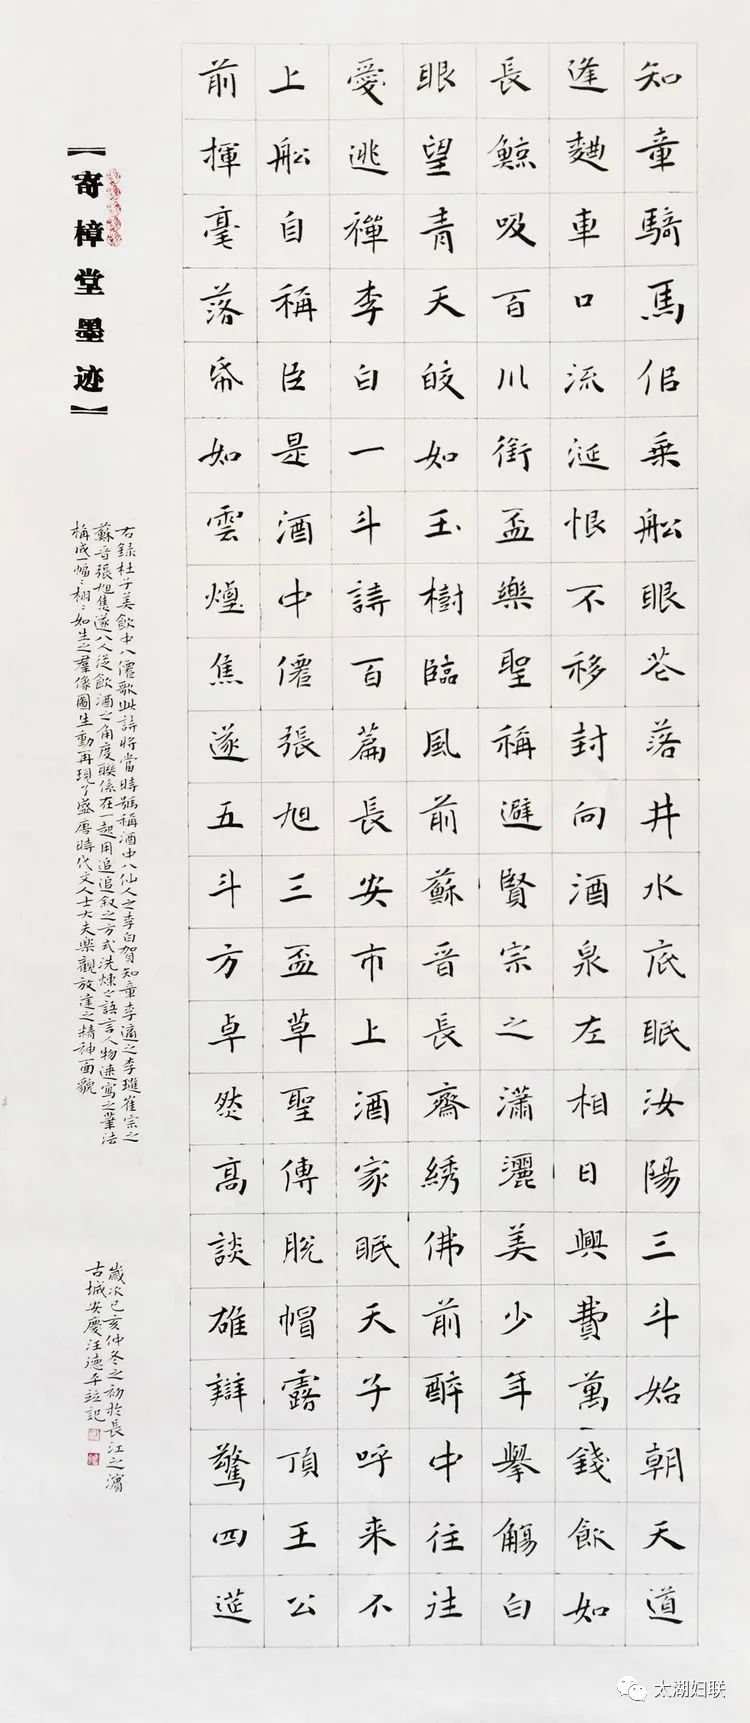 知童騎馬佀乗舩眼芲落井水底眠汝陽三斗始朝天道
逢麯車口流涎恨不移封向酒泉左相日興費萬錢飲如
長鯨吸百川銜盃樂聖稱避賢宗之瀟灑美少年舉觴白
眼望青天皎如玉樹臨風前蘇晉長齋綉佛前醉中往往
愛逃禪李白一斗詩百篇長安市上酒家眠天子呼来不
上舩自稱臣是酒中僊張旭三盃草聖傳脫帽露頂王公
前揮毫落帋如雲煙焦遂五斗方卓然高談雄辯驚四筵
右錄杜子美飲中八僊歌此詩將當時號稱酒中八仙人之李白賀知章李適之李璡崔宗之
蘇晉張旭焦遂八人從飲酒之角度聯係在一起用追叙之方式洗煉之語言人物速寫之筆法
構成一幅栩栩如生之羣像圖生動再現了盛唐時代文人士大夫樂觀放達之精神面貌
歲次己亥仲冬之初於長江之濱
古城安慶汪德平並記
【寄樟堂墨迹】
太湖妇联